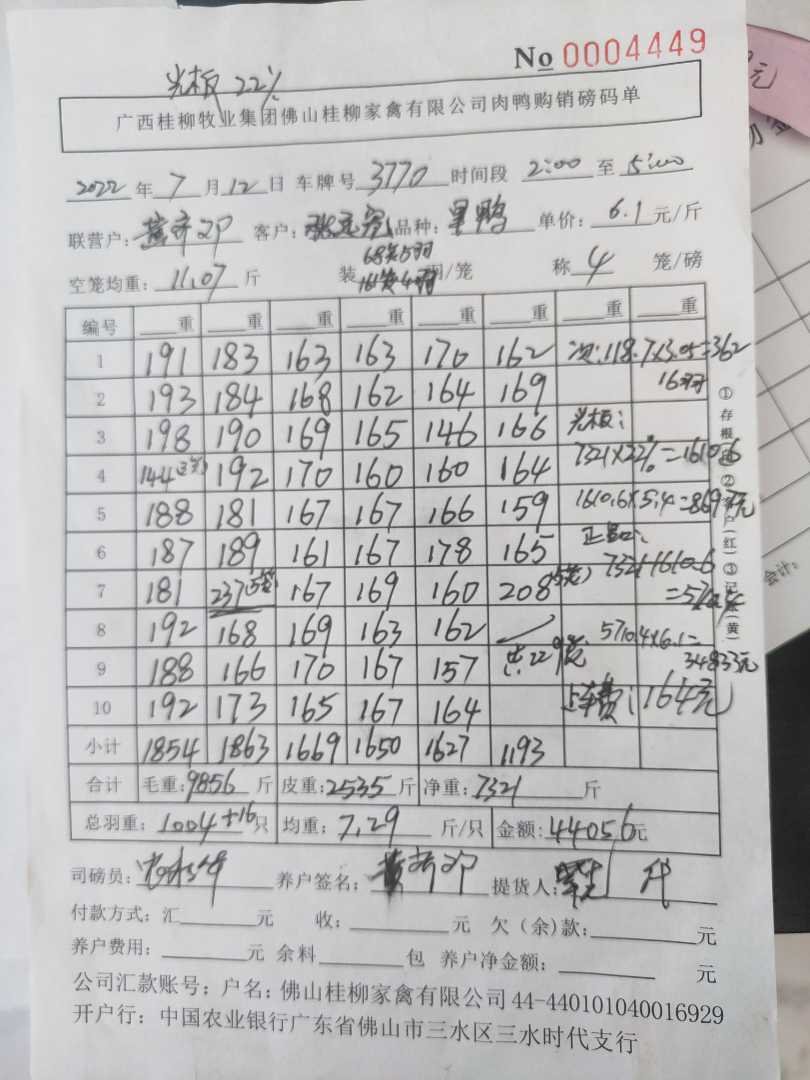 No 0004449
光板 22%
广西桂柳牧业集团佛山桂柳家禽有限公司肉鸭购销磅码单
2022 年 7 月 12 日 车牌号 3770 时间段 2:00 至 5:00
联营户: 客户: 品种: 鸭 单价: 6.1 元/斤
68笼5羽
空笼均重: 11.07 斤 装 161笼4羽 /笼 称 4 笼/磅
编号 重 重 重 重 重 重 重 重
1 191 183 163 163 170 162 次:118.7×3.05=362
2 193 184 168 162 164 169 16羽
3 198 190 169 165 146 166 光板:
4 144(三笼) 192 170 160 160 164 7321×22%=1610.6
5 188 181 167 167 166 159 1610.6×5.4=8697元
6 187 189 161 167 178 165 正品:
7 181 237(5笼) 167 169 160 208(5笼) 7321-1610.6
=5710.4
8 192 168 169 163 162 5710.4×6.1=
9 188 166 170 167 157 共229笼 34833元
10 192 173 165 167 164 上车费:164元
小计 1854 1863 1669 1650 1627 1193
合计 毛重:9856 斤 皮重:2535 斤 净重:7321 斤
总羽重: 1004+16 只 均重: 7.29 斤/只 金额:44056元
司磅员: 养户签名: 提货人:
付款方式:汇 元 收: 元 欠(余)款: 元
养户费用: 元 余料 包 养户净金额: 元
公司汇款账号:户名:佛山桂柳家禽有限公司 44-440101040016929
开户行:中国农业银行广东省佛山市三水区三水时代支行
①存根 ②客户(红)③记账(黄)
会计: